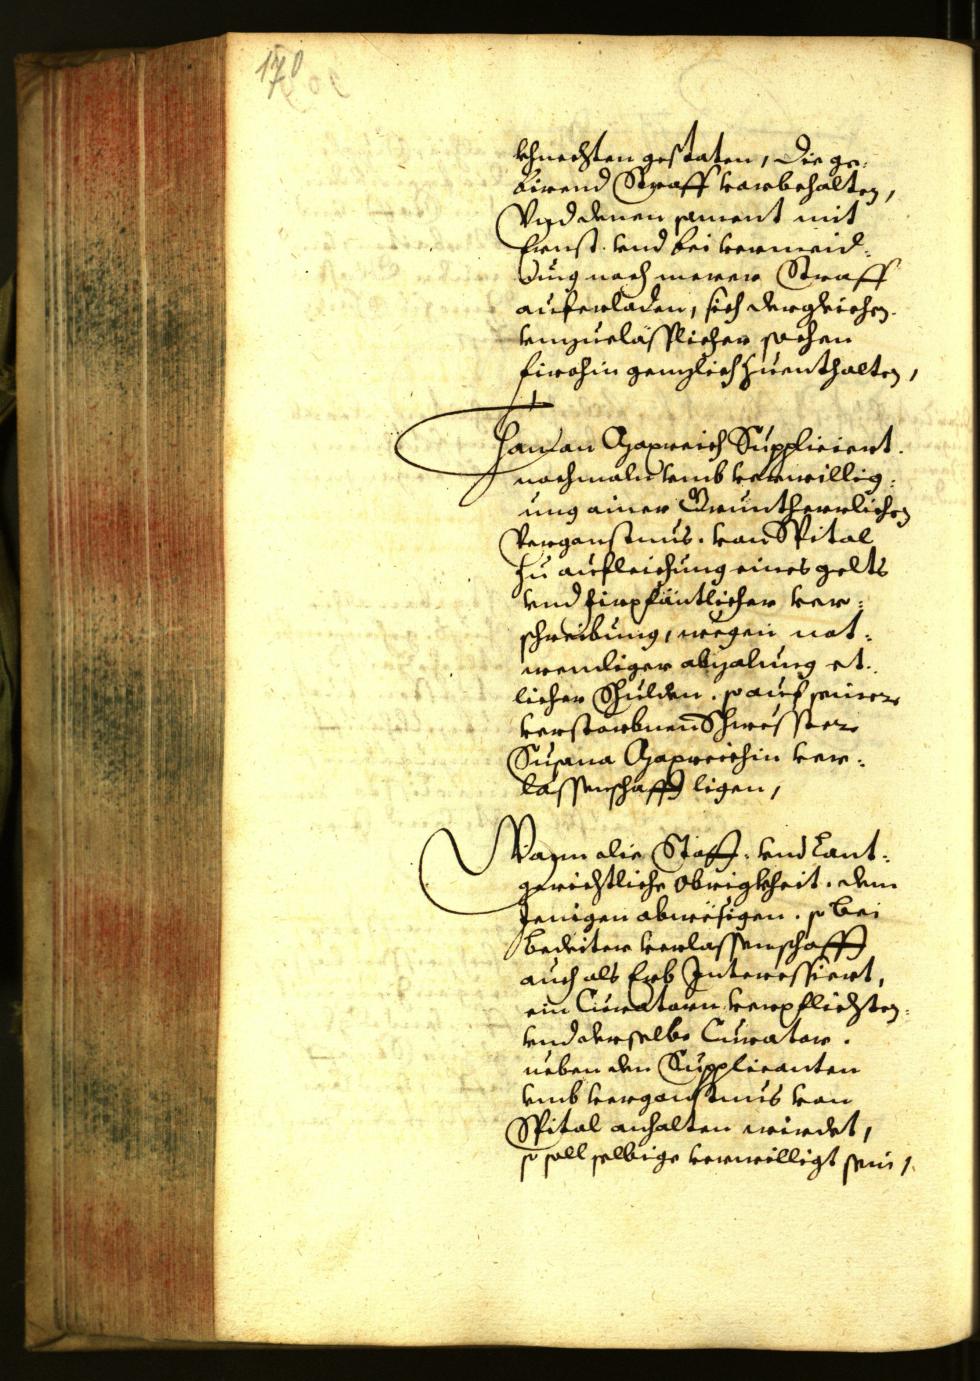 170
khnechten gestaten, Die ge:
birend Straff vorbehalten,
Vnd denen sament mit
Ernst. vnd bei vermeid:
ung noch merer Straff
auferladen, sich dergleichen
vnzuelässlicher sachen
firohin genzlich zuenthalten,
Suppliciert.
nochmaln vmb verwillig:
ung ainer Gruntherrlichen
Vergonstnus. von Spital
zu aufleichung eines gelts
vnd firpfäntlicher ver:
schreibung, wegen not:
wendiger abzalung et:
licher Schulden. so auf seiner
verstorbnen Schwesster
Susana ver:
lassenschafft ligen,
Wann die Statt. vnd Lant:
gerichtliche Obrigkheit. dem
Jenigen abwesigen. so bei
bedeiter verlassenschafft
auch als Erb Interessiert,
ein Curatorn verpflichten
vnd derselbe Curator.
neben den Supplicanten
vmb vergonstnus von
Spital anhalten wirdet,
so soll selbige verwilligt sein,